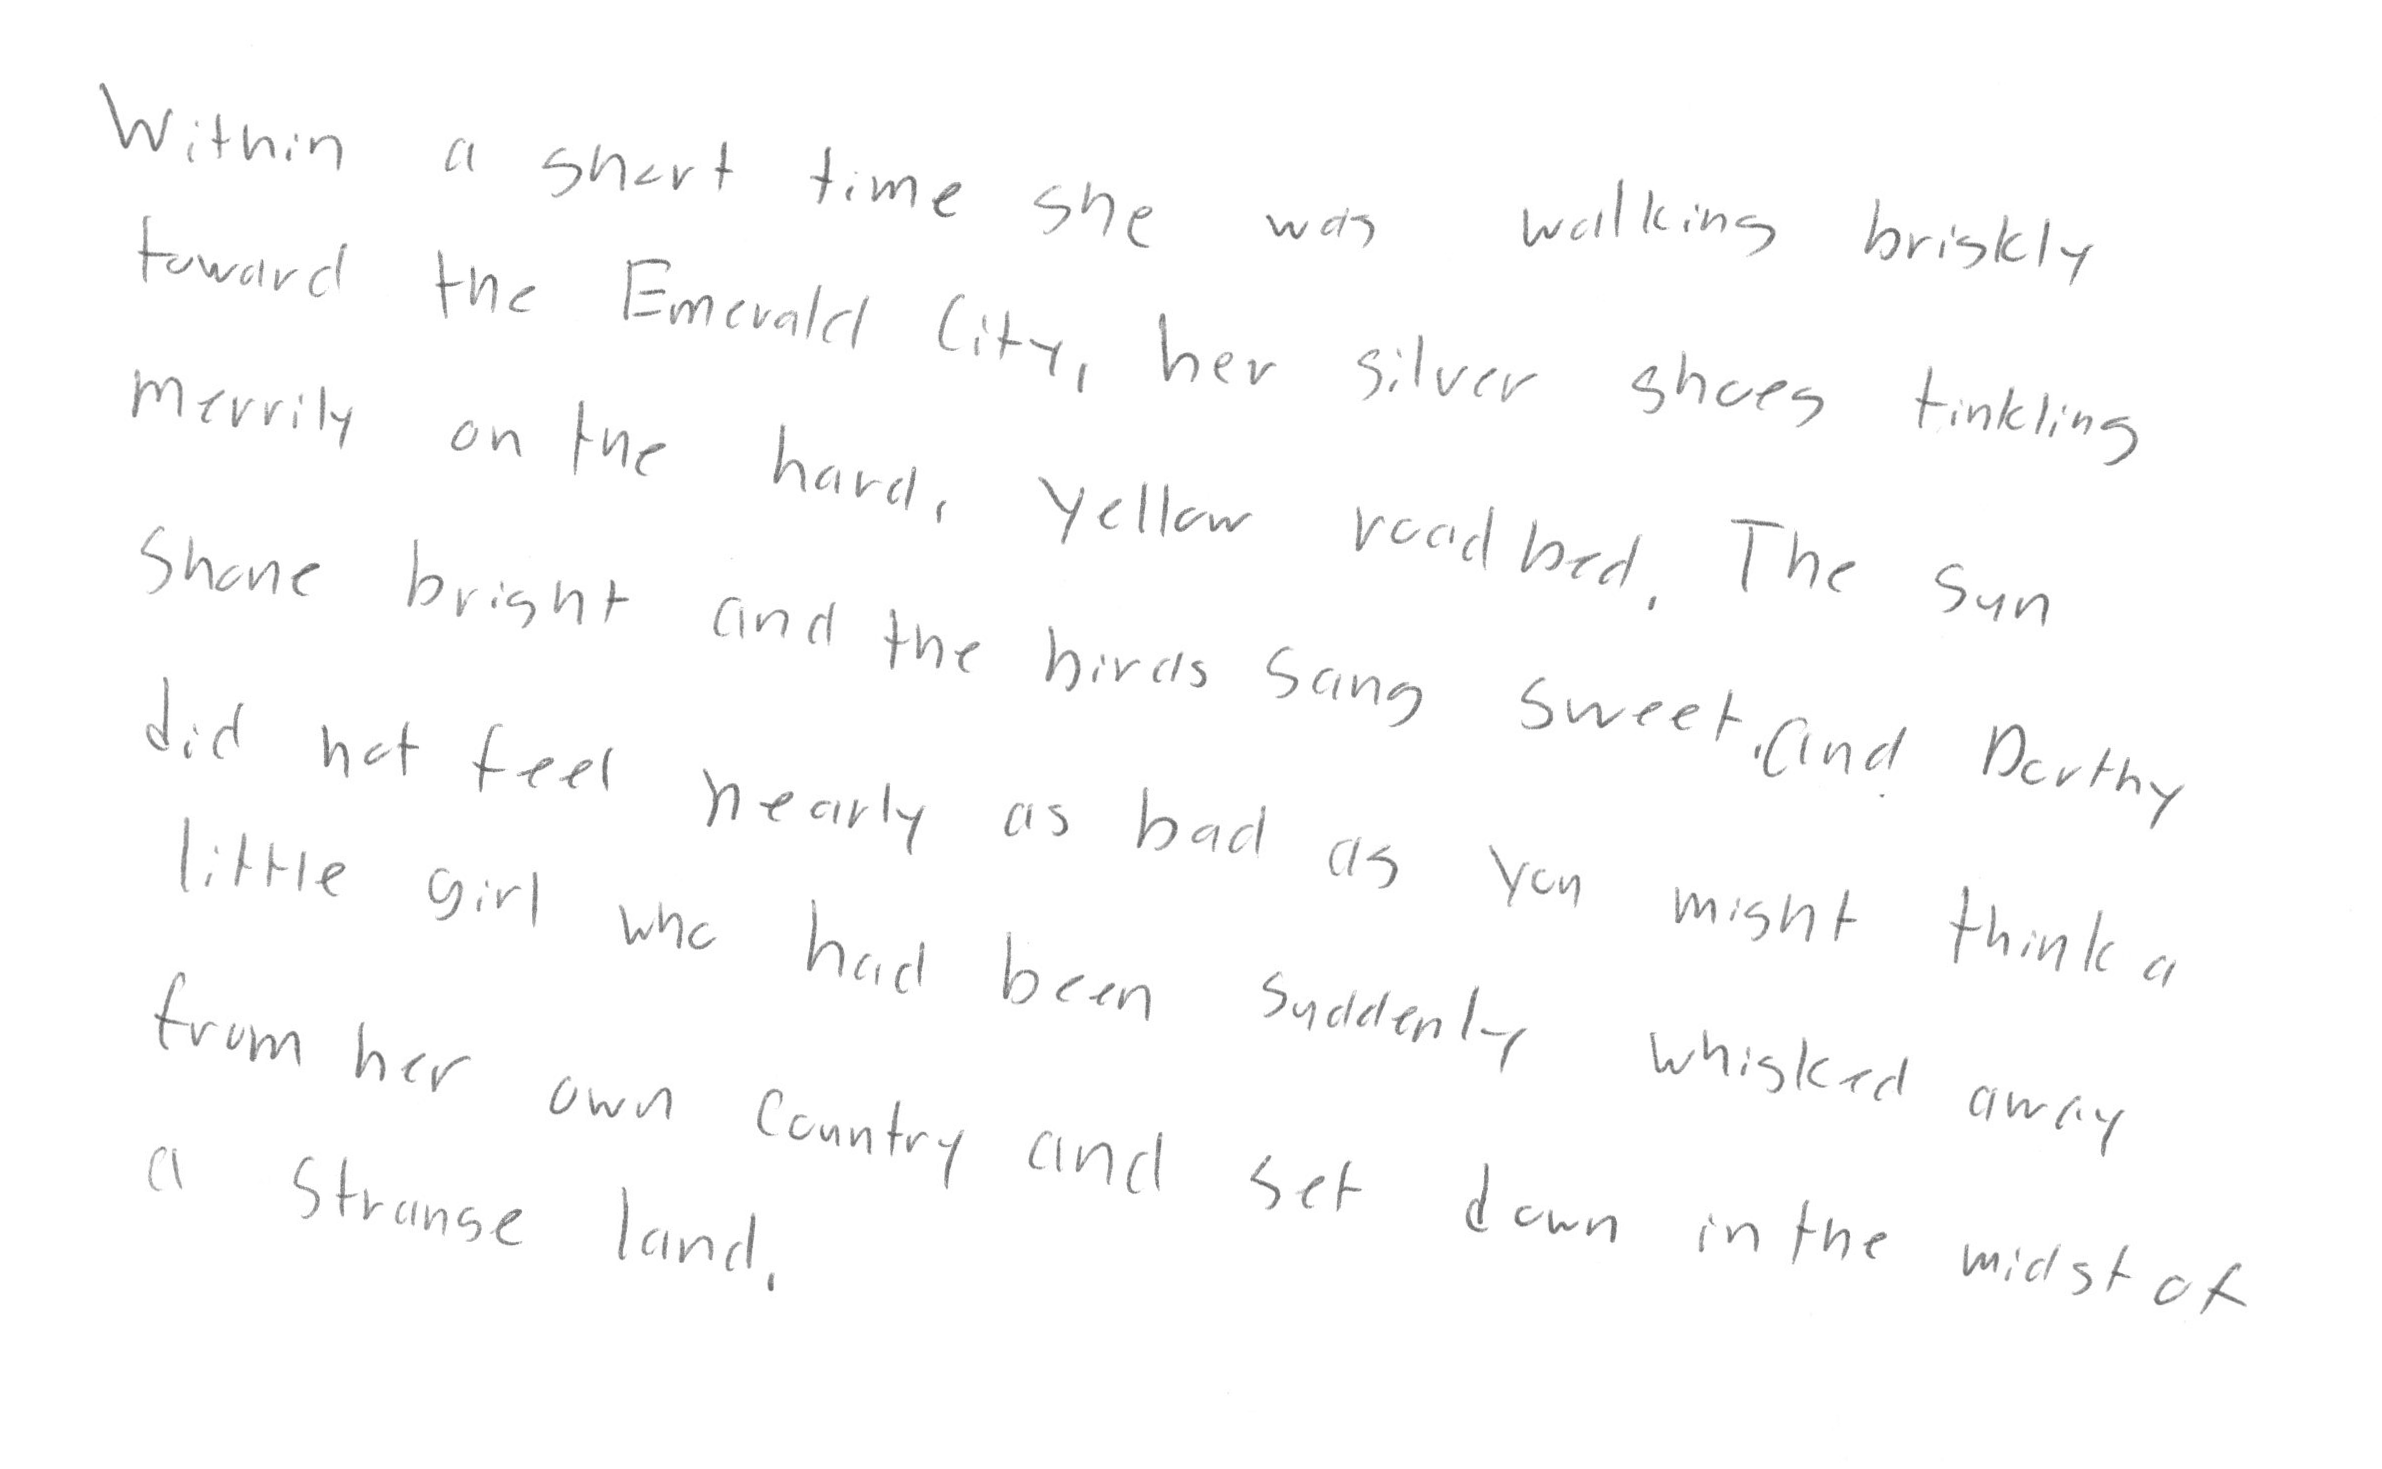 Within a short time she was walking briskly
toward the Emerald City, her silver shoes tinkling
merrily on the hard, yellow roadbed. The sun
shone bright and the birds sang sweet, and Dorthy
did not feel nearly as bad as you might think a
little girl who had been suddenly whisked away
from her own country and set down in the midst of
a strange land.